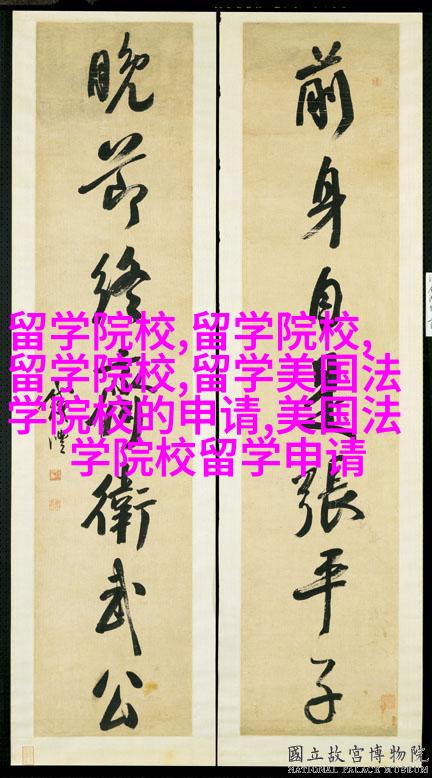 前身自是張平子
晚節終衛武公
錢灃
留学院校,留学院校,
留学院校,留学美国法
学院校的申请,美国法
学院校留学申请
國立故宮博物院
NATIONAL PALACE MUSEUM